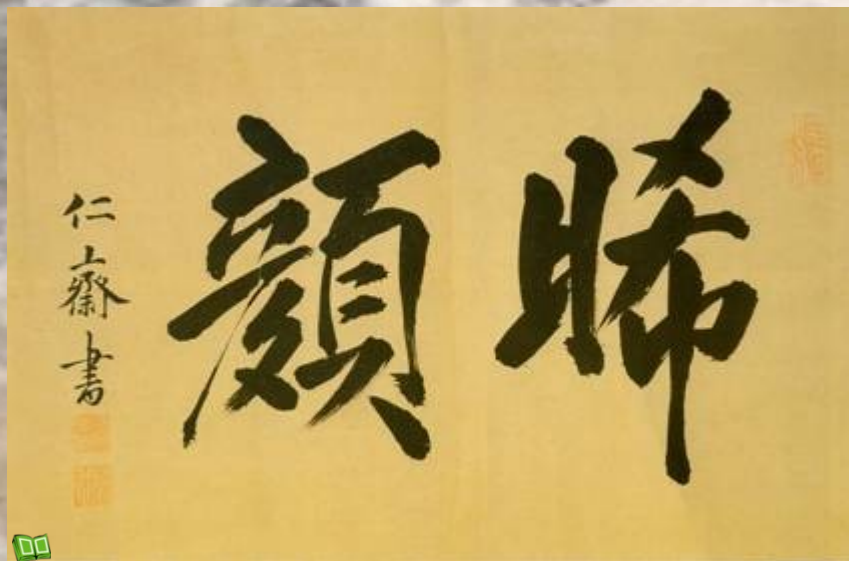 睎顔
仁齋書